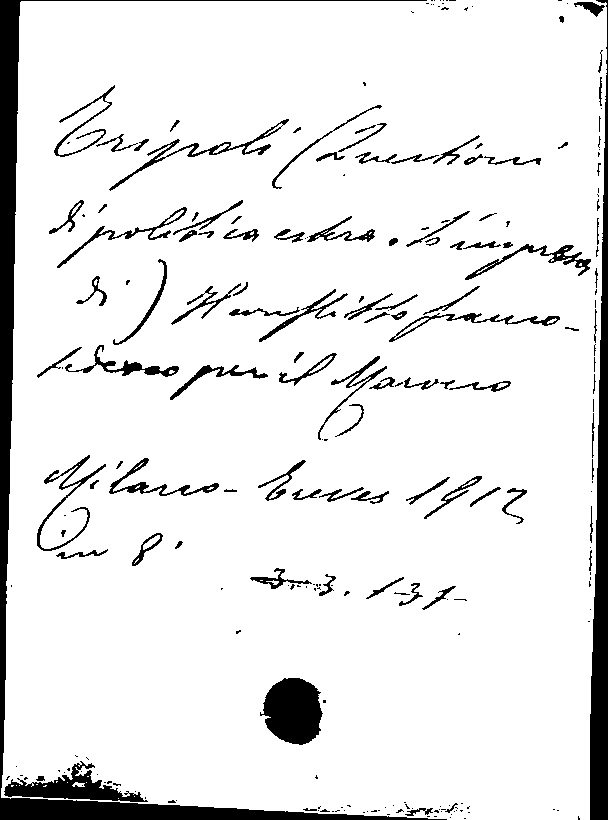 Tripoli (Questioni
di politica estera. L'impresa
di) Il conflitto franco-
tedesco per il Marocco
Milano - Treves 1912
in 8°
3. 131-